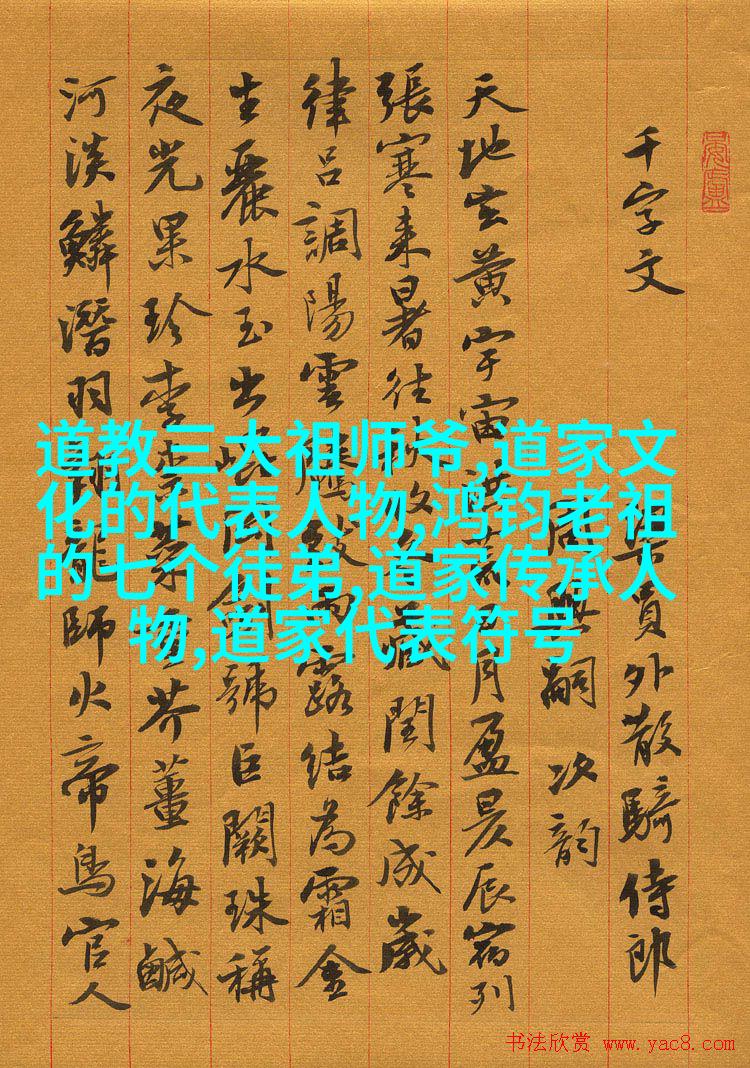 千字文 員外散騎侍郎
周興嗣次韵
天地玄黄宇宙洪荒日月盈昃辰宿列
張寒来暑往秋收冬藏閏餘成歲
律吕調陽雲騰致雨露結為霜金
生麗水玉出崑岡劍號巨闕珠稱
夜光果珍李柰菜重芥薑海鹹
河淡鱗潛羽翔龍師火帝鳥官人
道教三大祖师爷,道家文
化的代表人物,鸿钧老祖
的七个徒弟,道家传承人
物,道家代表符号
书法欣赏 www.yac8.com